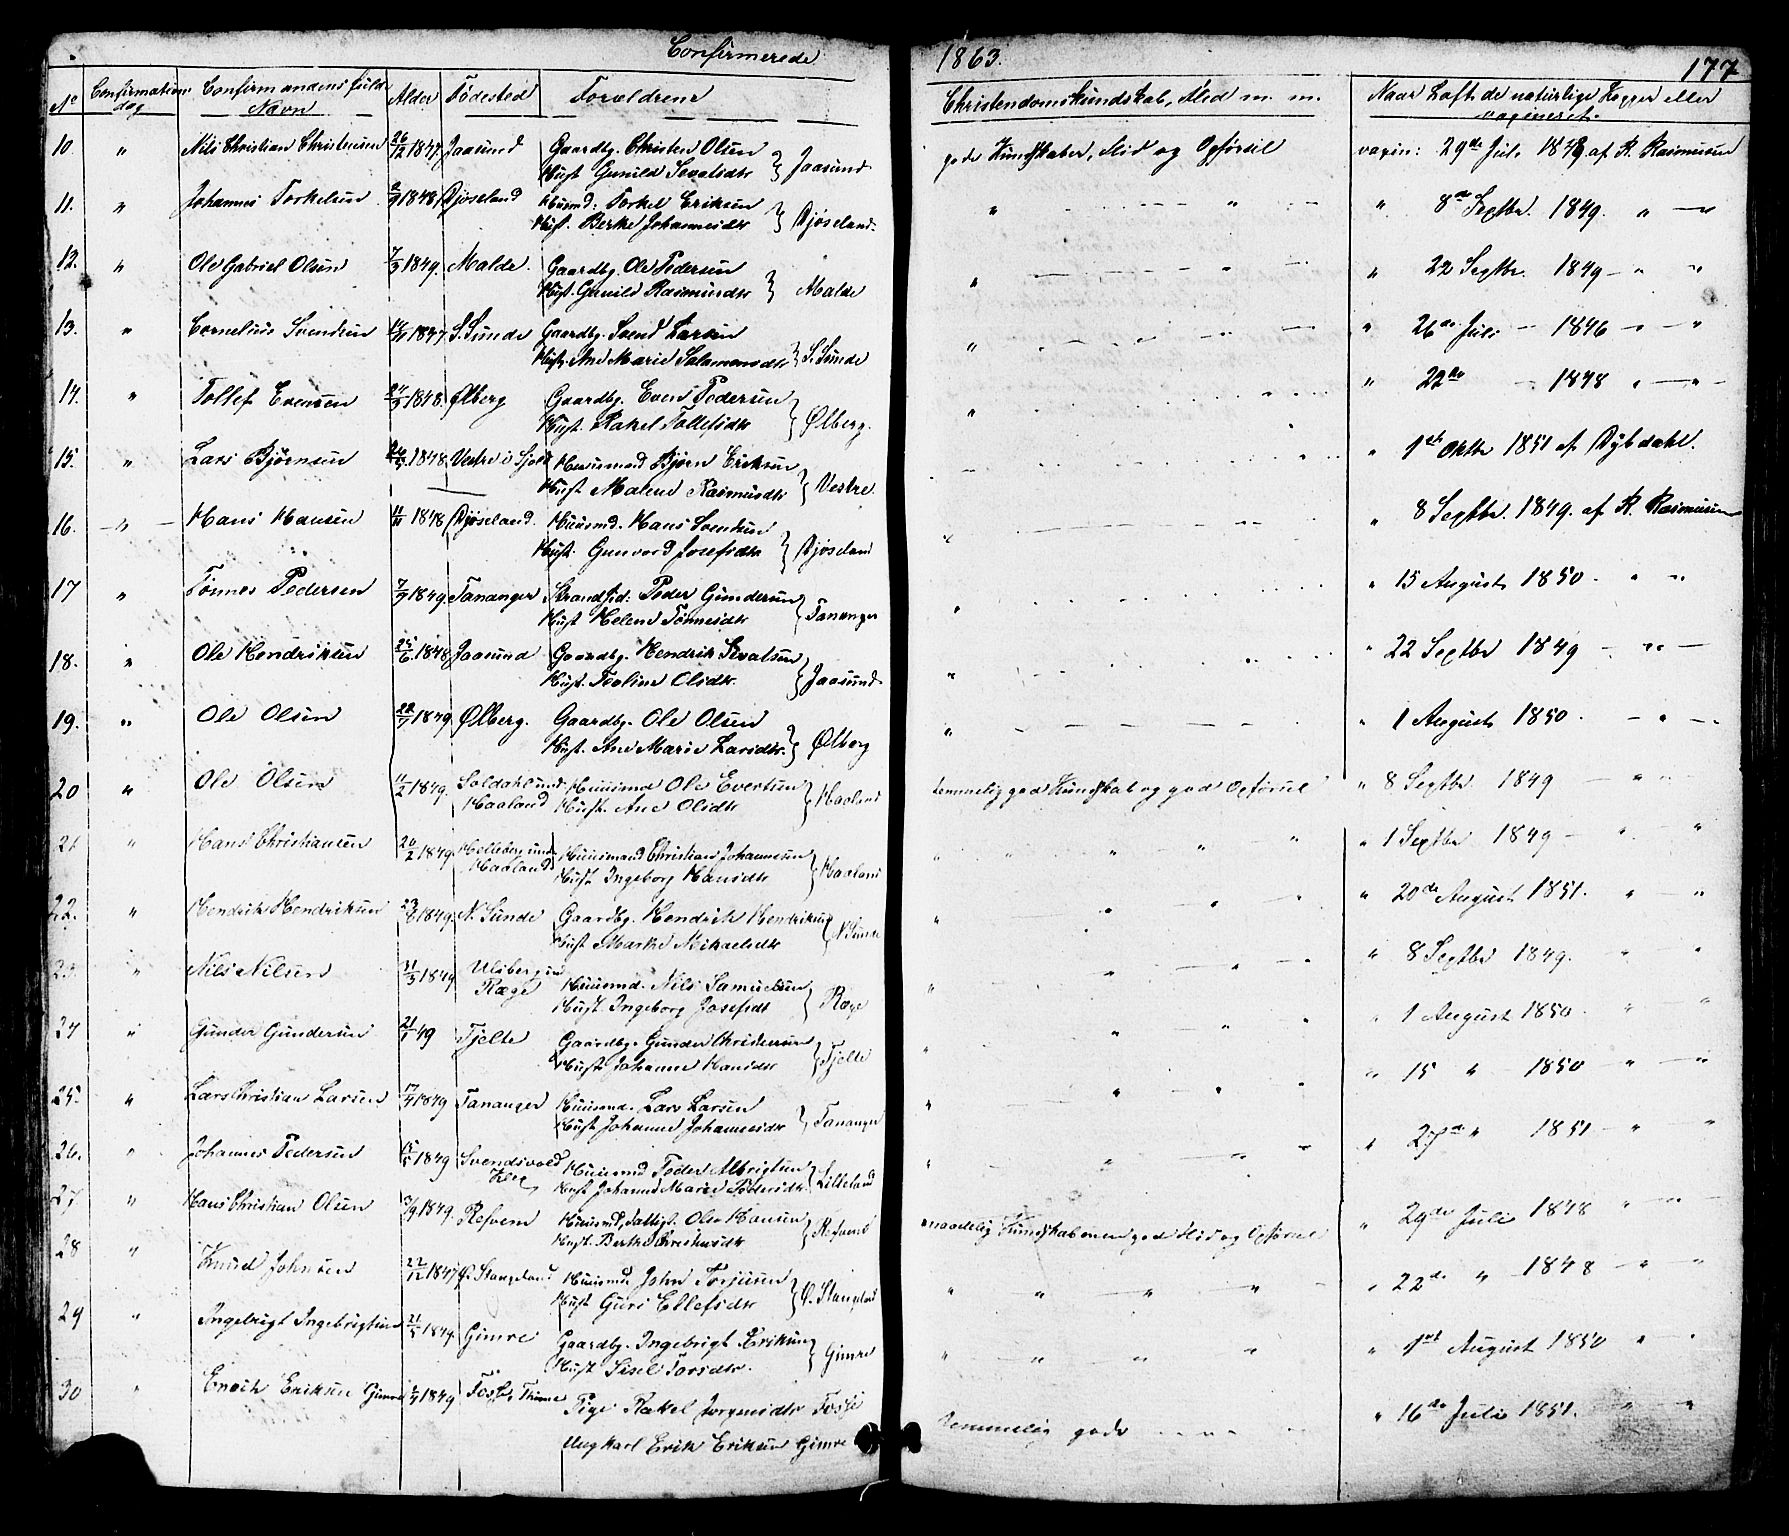 Confirmerede 1863. 177
No Confirmations dag Confirmandens fulde Navn Alder Fødested Forældrene Christendomskundskab, Flid m. m. Naar havt de naturlige Kopper eller vaxineret.
10. " Nils Christian Christensen 26/12 1847. Jaasund Gaardbr. Christen Olsen
Hust. Gunild Sevalsdtr } Jaasund gode Kundskaber, Flid og Opførsel vaxin: 29de Juli af R. Rasmusen
11. " Johannes Torkelsen 1848. Djøseland Huusmd: Torkel Eriksen
Hust. Berthe Johannesdtr } Djøseland. " 8de Septbr. 1849. " — "
12. " Ole Gabriel Olsen 7/3 1849. Malde. Gaardbr. Ole Pedersen
Hust. Gunild Rasmusdtr } Malde " 22 Septbr. 1849 — " "
13. " Cornelius Svendsen 1847. S. Sunde Gaardbr. Svend Larsen
Hust. Ane Marie Salamonsdtr } S. Sunde " 26de Juli — 1846 — "
14. " Tollef Evensen 1848. Ølberg Gaardbr. Even Pedersen
Hust. Rakel Tollefsdtr } Ølberg. " 22de — 1848 " — " —
15. " Lars Bjørnsen 1848 Vestre i Sjold Huusmand Bjørn Eriksen
Hust Malene Rasmusdtr } Vestre. " 1ste Oktbr 1851 af Dybdahl.
16. — " — Hans Hansen 11/11 1848 Djøseland. Huusmd. Hans Svendsen
Hust. Gunvord Josefsdtr } Djøseland " 8 Septbr. 1849. af R. Rasmusen
17 " Tønnes Pedersen 7/9 1849. Tananger Strandsid: Peder Gundersen
Hust Helene Tønnesdtr } Tananger " 15 August 1850. " "
18. " Ole Hendriksen 25/6 1848 Jaasund Gaardbr. Hendrik Sevalsen
Hust. Teoline Olsdtr. } Jaasund " 22 Septbr 1849 — " —
19. " Ole Olsen 22/7 1849. Ølberg. Gaardbr. Ole Olsen
Hust. Ane Marie Larsdtr. } Ølberg " 1 August 1850. — " —
20 " Ole Olsen 11/2 1849. Soldahl und Haaland Huusmd Ole Evertsen
Hust. Ane Olsdtr } Haaland temmelig god Kundskab og god Opførsel " 8 Septbr. 1849 — "
21 " Hans Christiansen 20/2 1849. Helleberg und Haaland Huusmand Christian Johannesen
Hust. Ingeborg Hansdtr } Haaland " 1 Septbr 1849 — " — "
22. " Hendrik Hendriksen 23/8 1849. N. Sunde Gaardbr. Hendrik Hendriksen
Hust Marthe Mikaelsdtr } N Sunde " 20de August 1851. " — "
23. " Nils Nilsen 1849 Ulsberg un Ræge Huusmd. Nils Samuelsen
Hust Ingeborg Josefsdt } Ræge " 8 Septbr 1849. "
24 " Gunder Gundersen 49 Tjelte Gaardbr. Gunder Christensen
Hust Johanne Hansdtr } Tjelte " 1 August 1850. "
25. " Lars Christian Larsen 17/7 1849 Tananger Huusmd. Lars Larsen
Hust Johanne Johannesdtr } Tananger " 15 " 1850 " — "
26. " Johannes Pedersen 1849 Svendsvold Huusmd Peder Albrigtsen
Hust Johanne Marie Pedersdtr. } Litleland " 27de " 1851 — " "
27 " Hans Christian Olsen 3/9. 1849. Refvem Huusmd, Fattigf. Ole Hansen
Hust. Berthe Eriksdtr } Refvem maadelig Kundskab men god Flid og Opførsel " 29de Juli 1848 "
28 " Knud Johnsen 22/12 1847 Ø. Stangeland Huusmd John Torjusen
Hust Guri Ellefsdtr } Ø. Stangeland " 22de " 1848 — " "
29 " Ingebrigt Ingebrigtsen 21/5 1849. Gimre Gaardbr. Ingebrigt Eriksen
Hust Sisel Torsdtr. } Gimre " 1ste August 1850 "
30 " Enoch Eriksen Gimre 1849 Pige Rakel Jorgensdtr Fosse
Ungkarl Erik Eriksen Gimre temmelig gode " 16de Juli 1851. " "